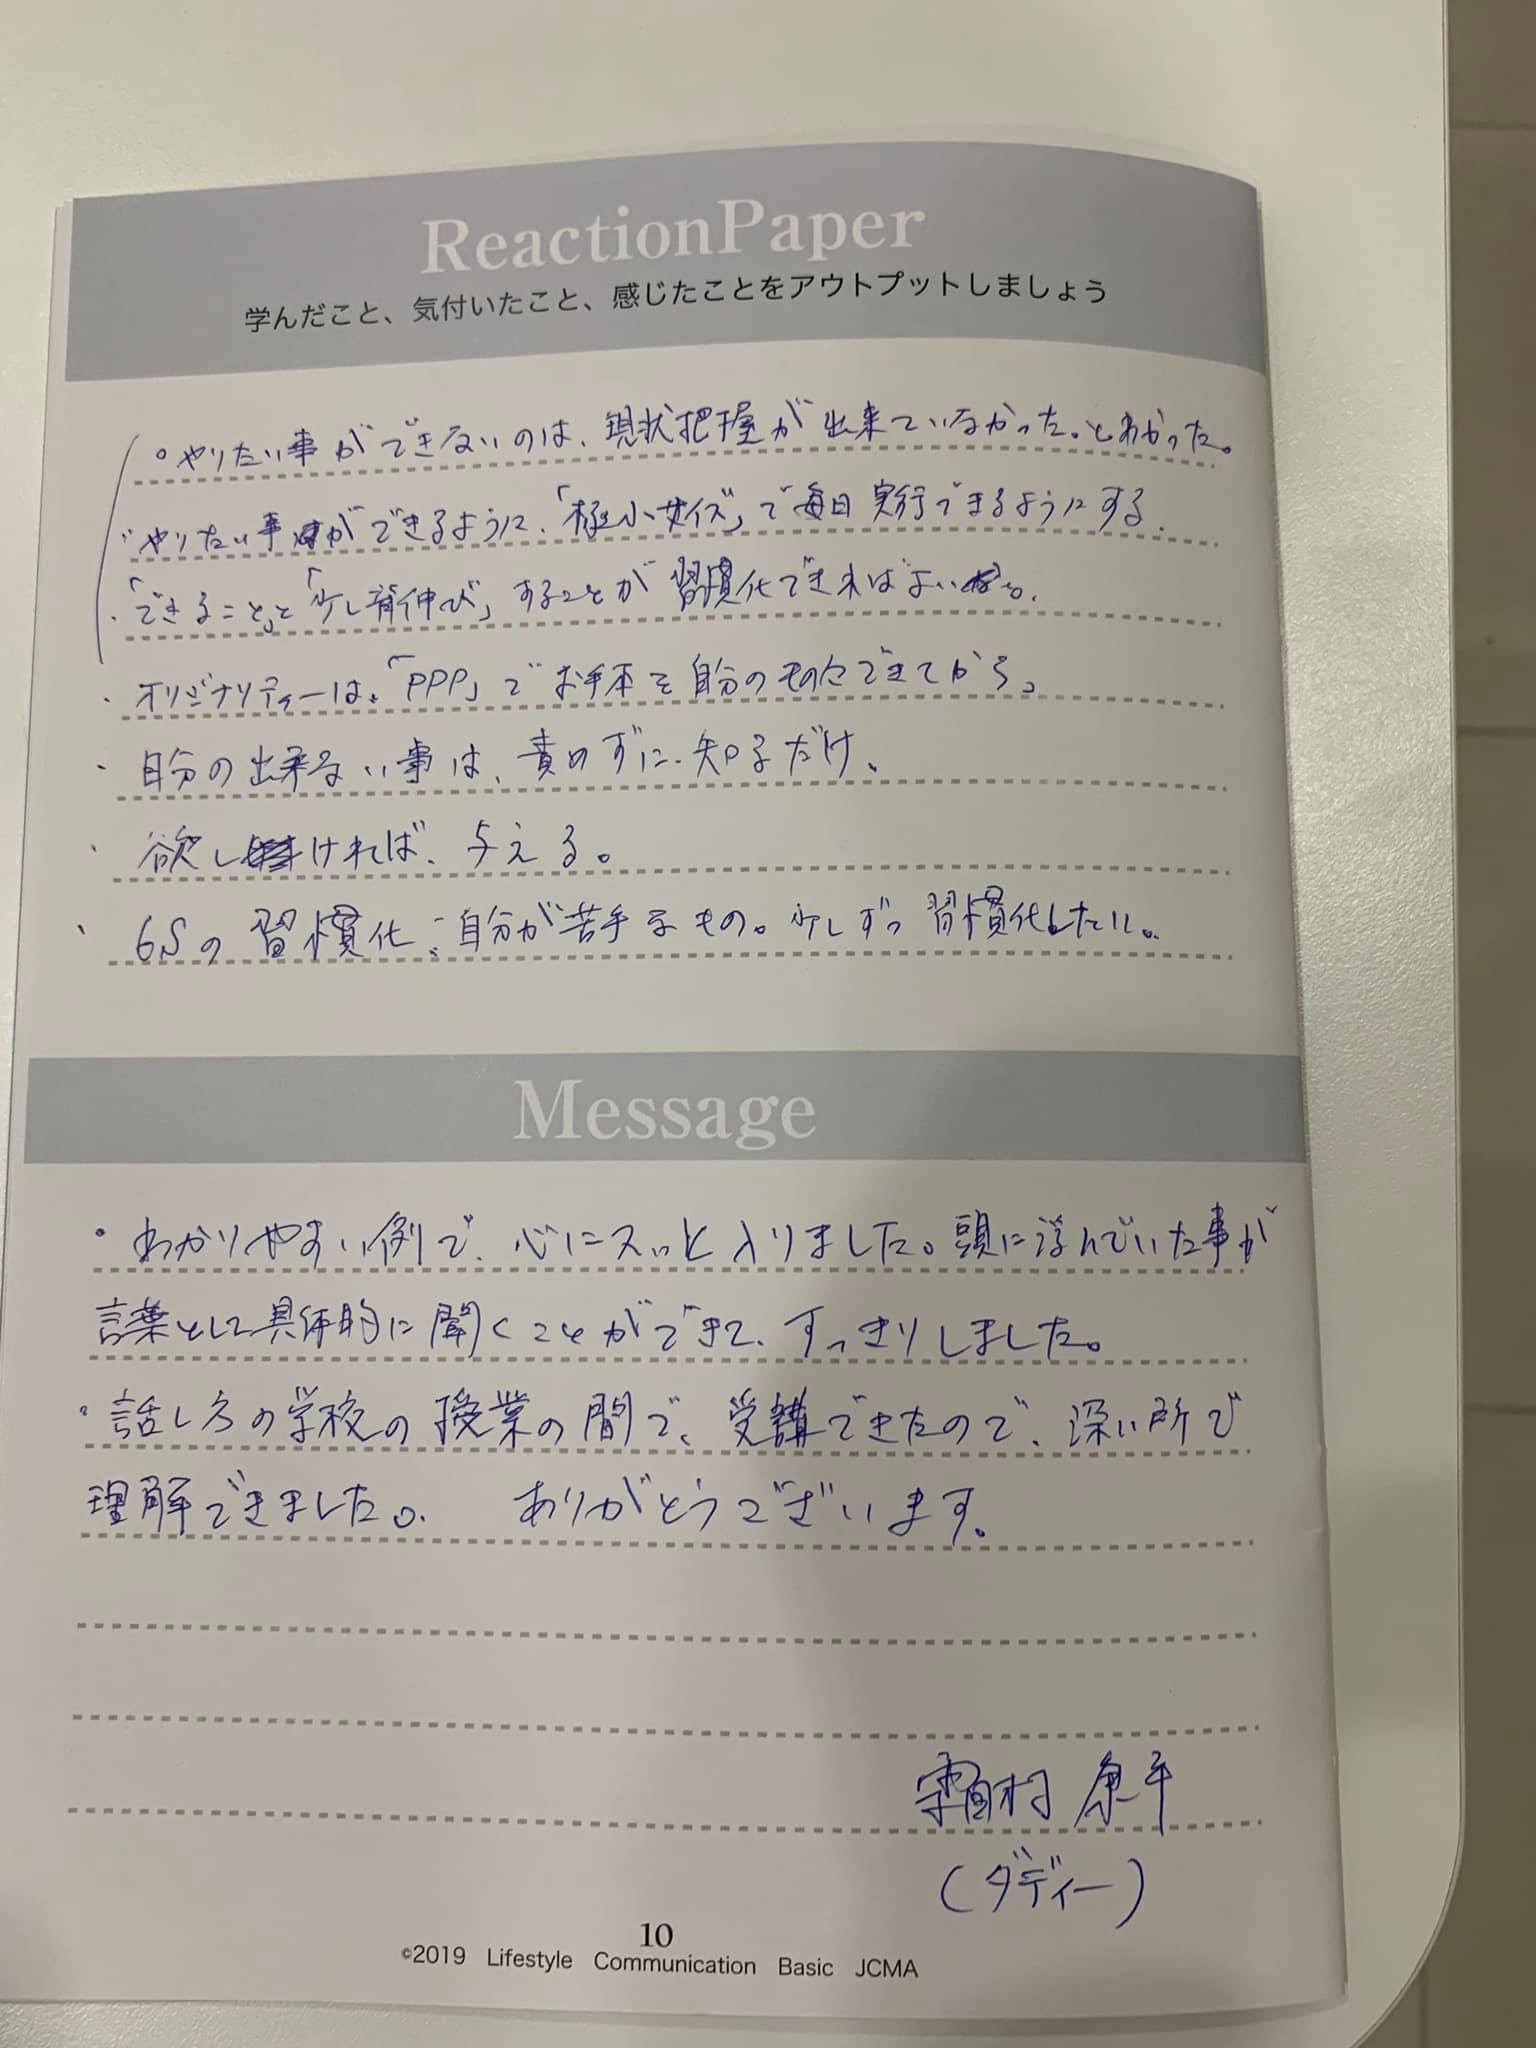 ReactionPaper
学んだこと、気付いたこと、感じたことをアウトプットしましょう
。やりたい事ができないのは、現状把握が出来ていなかった。とわかった。
・やりたい事ができるように、「極小サイズ」で毎日実行できるようにする。
・「できること」と「少し背伸び」することが習慣化できればよい。
・オリジナリティーは、「PPP」でお手本を自分のものにできてから。
・自分の出来ない事は、責めずに、知るだけ。
・欲しければ、与える。
・6Sの習慣化:自分が苦手なもの。少しずつ習慣化したい。
Message
・わかりやすい例で、心にスッと入りました。頭に浮んでいた事が
言葉として具体的に聞くことができて、すっきりしました。
・話し方の学校の授業の間で、受講できたので、深い所で
理解できました。 ありがとうございます。
霜村 康平
(ダディー)
10
©2019 Lifestyle Communication Basic JCMA